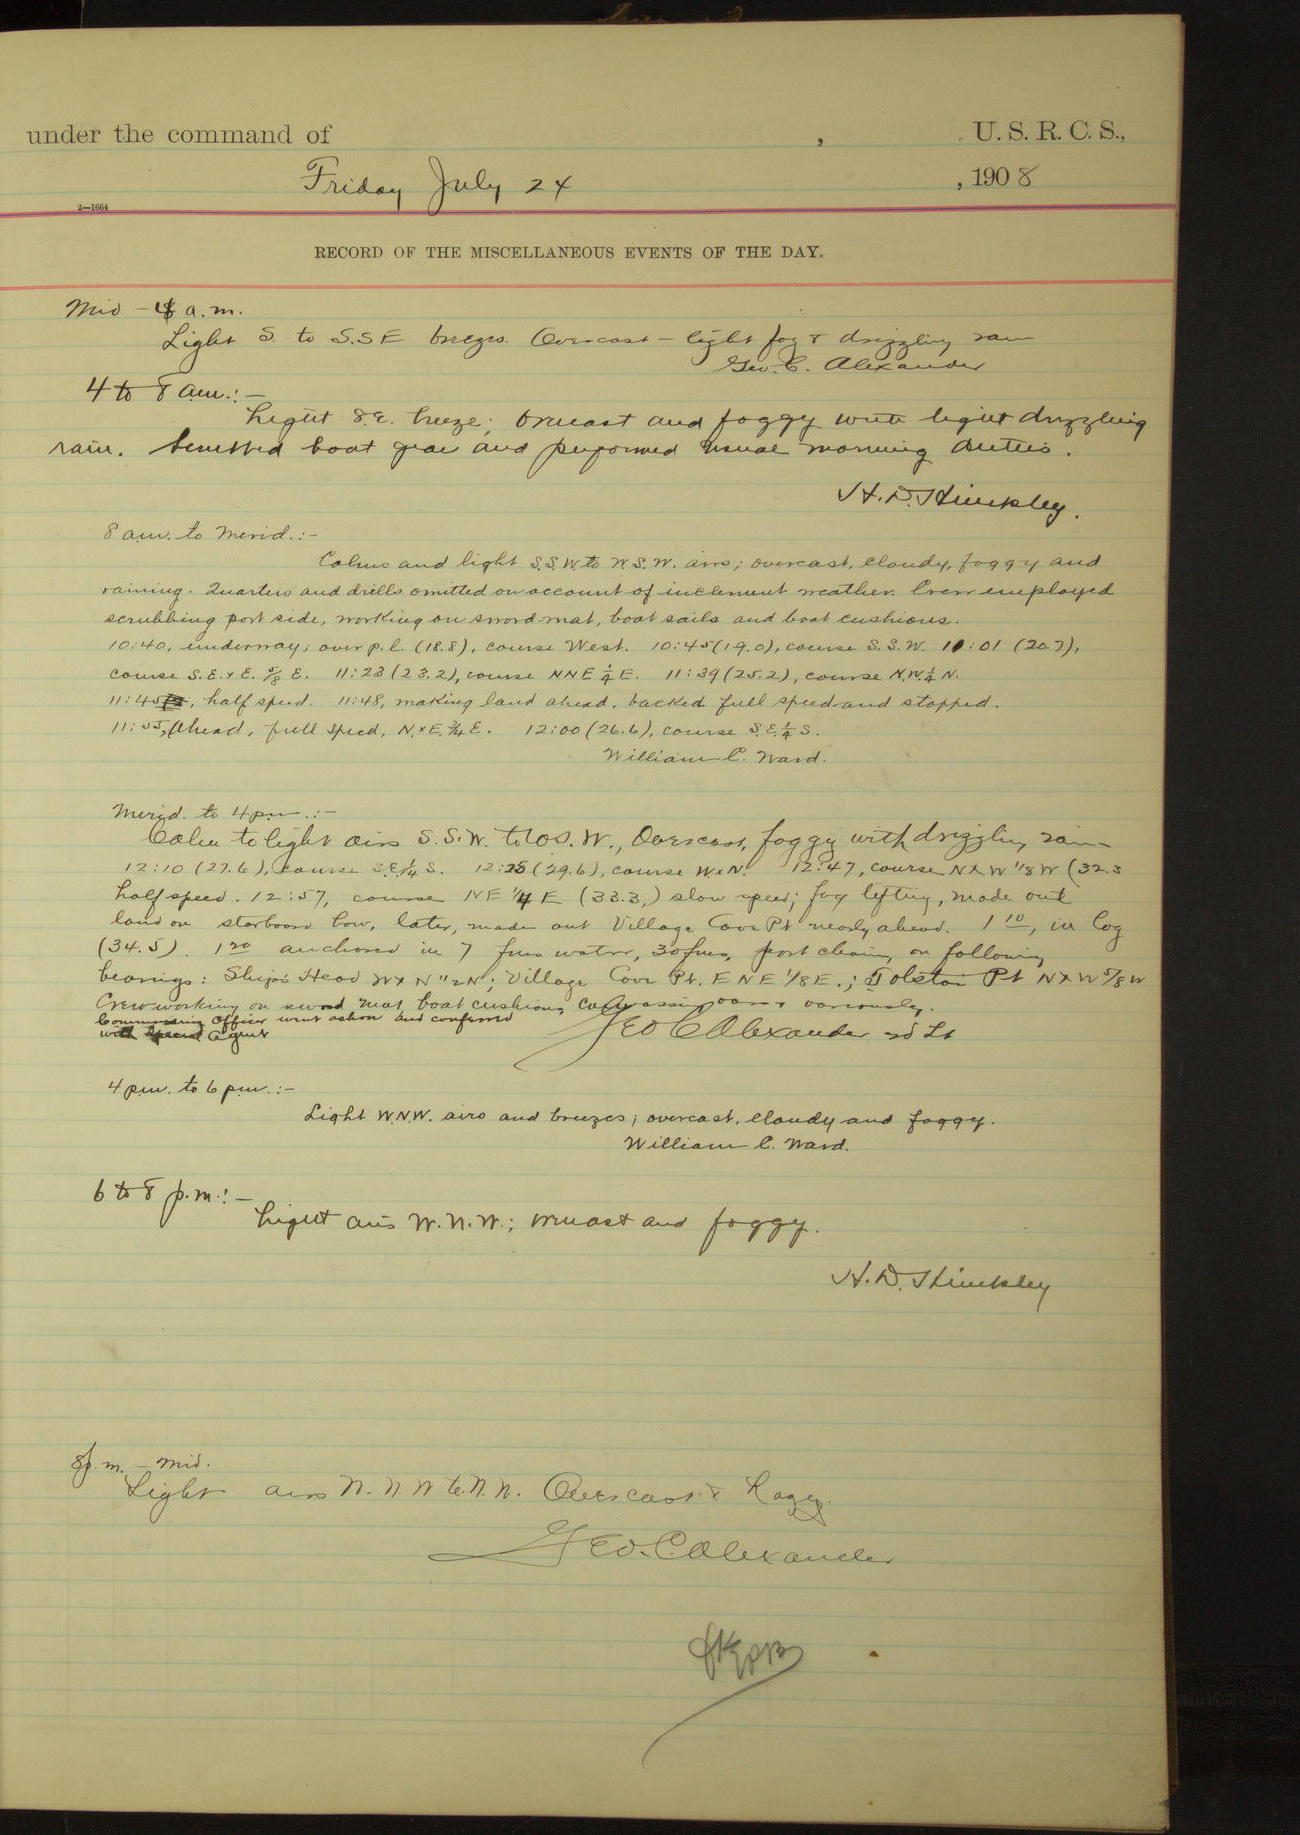 under the command of , U. S. R. C. S.,
Friday July 24 , 1908
2—1664
RECORD OF THE MISCELLANEOUS EVENTS OF THE DAY.
Mid - 4 a.m.
Light S. to S.S.E breezes. Overcast - light fog & drizzling rain
Geo. C. Alexander
4 to 8 a.m.:-
Light S.E. breeze; overcast and foggy with light drizzling
rain. boat gear and performed usual morning duties.
H. D. Hinckley.
8 a.m. to Merid.:-
Calms and light S.S.W. to W.S.W. airs; overcast, cloudy, foggy and
raining. Quarters and drills omitted on account of inclement weather. Crew employed
scrubbing port side, working on sword mat, boat sails and boat cushions.
10:40, underway; over p.l. (18.8), course West. 10:45 (19.0), course S.S.W. 11:01 (20.7),
course S.E. x E. 5/8 E. 11:23 (23.2), course NNE 1/4 E. 11:39 (25.2), course N.W. 1/4 N.
11:45, half speed. 11:48, making land ahead, backed full speed and stopped.
11:55, Ahead, full speed, N. x E. 3/4 E. 12:00 (26.6), course S.E. 1/4 S.
William C. Ward.
Merid. to 4 pm.:-
Calm to light airs S.S.W. to W.S.W., Overcast, foggy with drizzling rain
12:10 (27.6), course S.E. 1/4 S. 12:25 (29.6), course W x N. 12:47, course N x W 1/8 W (32.3
half speed. 12:57, course NE 1/4 E (33.3,) slow speed; fog lifting, made out
land on starboard bow, later, made out Village Cove Pt nearly ahead. 1 10, in log
(34.5). 1 20 anchored in 7 fms water, 30 fms, port chain, on following
bearings: Ship's Head W x N 1/2 N; Village Cove Pt. E N E 1/8 E.; Tolstoi Pt N x W 5/8 W
Crew working on sword mat, boat cushions, canvassing oars & variously.
Commanding Officer went ashore and conferred
with Special Agent
Geo C Alexander 2d Lt
4 p.m. to 6 p.m.:-
Light W.N.W. airs and breezes; overcast, cloudy and foggy.
William C. Ward.
6 to 8 p.m.:-
Light airs W.N.W.; overcast and foggy.
H. D. Hinckley
8 p.m. - Mid.
Light airs W. N. W to N. W. Overcast & Hazy.
Geo. C. Alexander